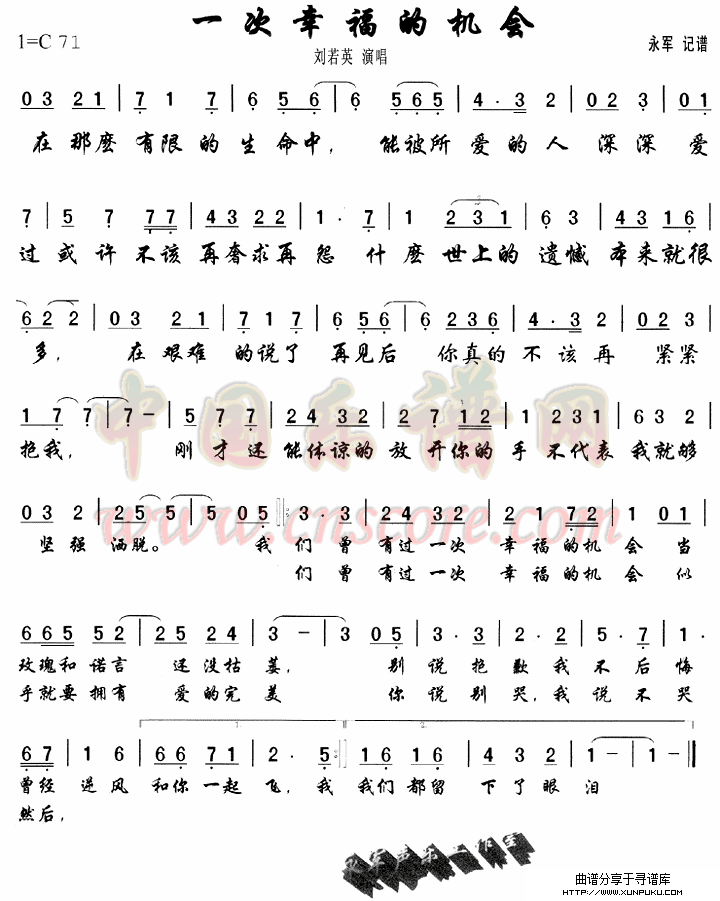 一次幸福的机会
1=C 71
刘若英 演唱
永军 记谱
03 21 | 7 1 7 | 6 5 6 | 6 565 | 4 · 3 2 | 02 3 | 01
在那麽有限的生命中，能被所爱的人深深爱
7 | 5 7 77 | 43 22 | 1 · 7 | 1 231 | 6 3 | 43 16 |
3
过或许不该再奢求再怨什麽世上的遗憾本来就很
6 2 2 | 03 21 | 7 1 7 | 6 56 | 6 236 | 4 · 3 2 | 02 3 |
多，在艰难的说了再见后你真的不该再紧紧
1 7 7 | 7 － | 5 7 7 | 24 32 | 2 7 12 | 1 231 | 63 2 |
抱我，刚才还能体谅的放开你的手不代表我就够
03 2 | 25 5 | 5 05 | 3 · 3 | 24 32 | 21 72 | 1 01 |
坚强洒脱。我们曾有过一次幸福的机会当
们曾有过一次幸福的机会似
665 52 | 25 24 | 3 － | 3 05 | 3 · 3 | 2 2 | 5 · 7 | 1 ·
玫瑰和诺言还没枯萎，别说抱歉我不后悔
乎就要拥有爱的完美你说别哭，我说不哭
1.
2.
67 | 1 6 | 66 71 | 2 · 5 | 16 16 | 4 32 | 1 － | 1 － |
曾经逆风和你一起飞，我我们都留下了眼泪
然后，
中国乐谱网
www.cnscore.com
永军声乐工作室
曲谱分享于寻谱库
HTTP://WWW.XUNPUKU.COM